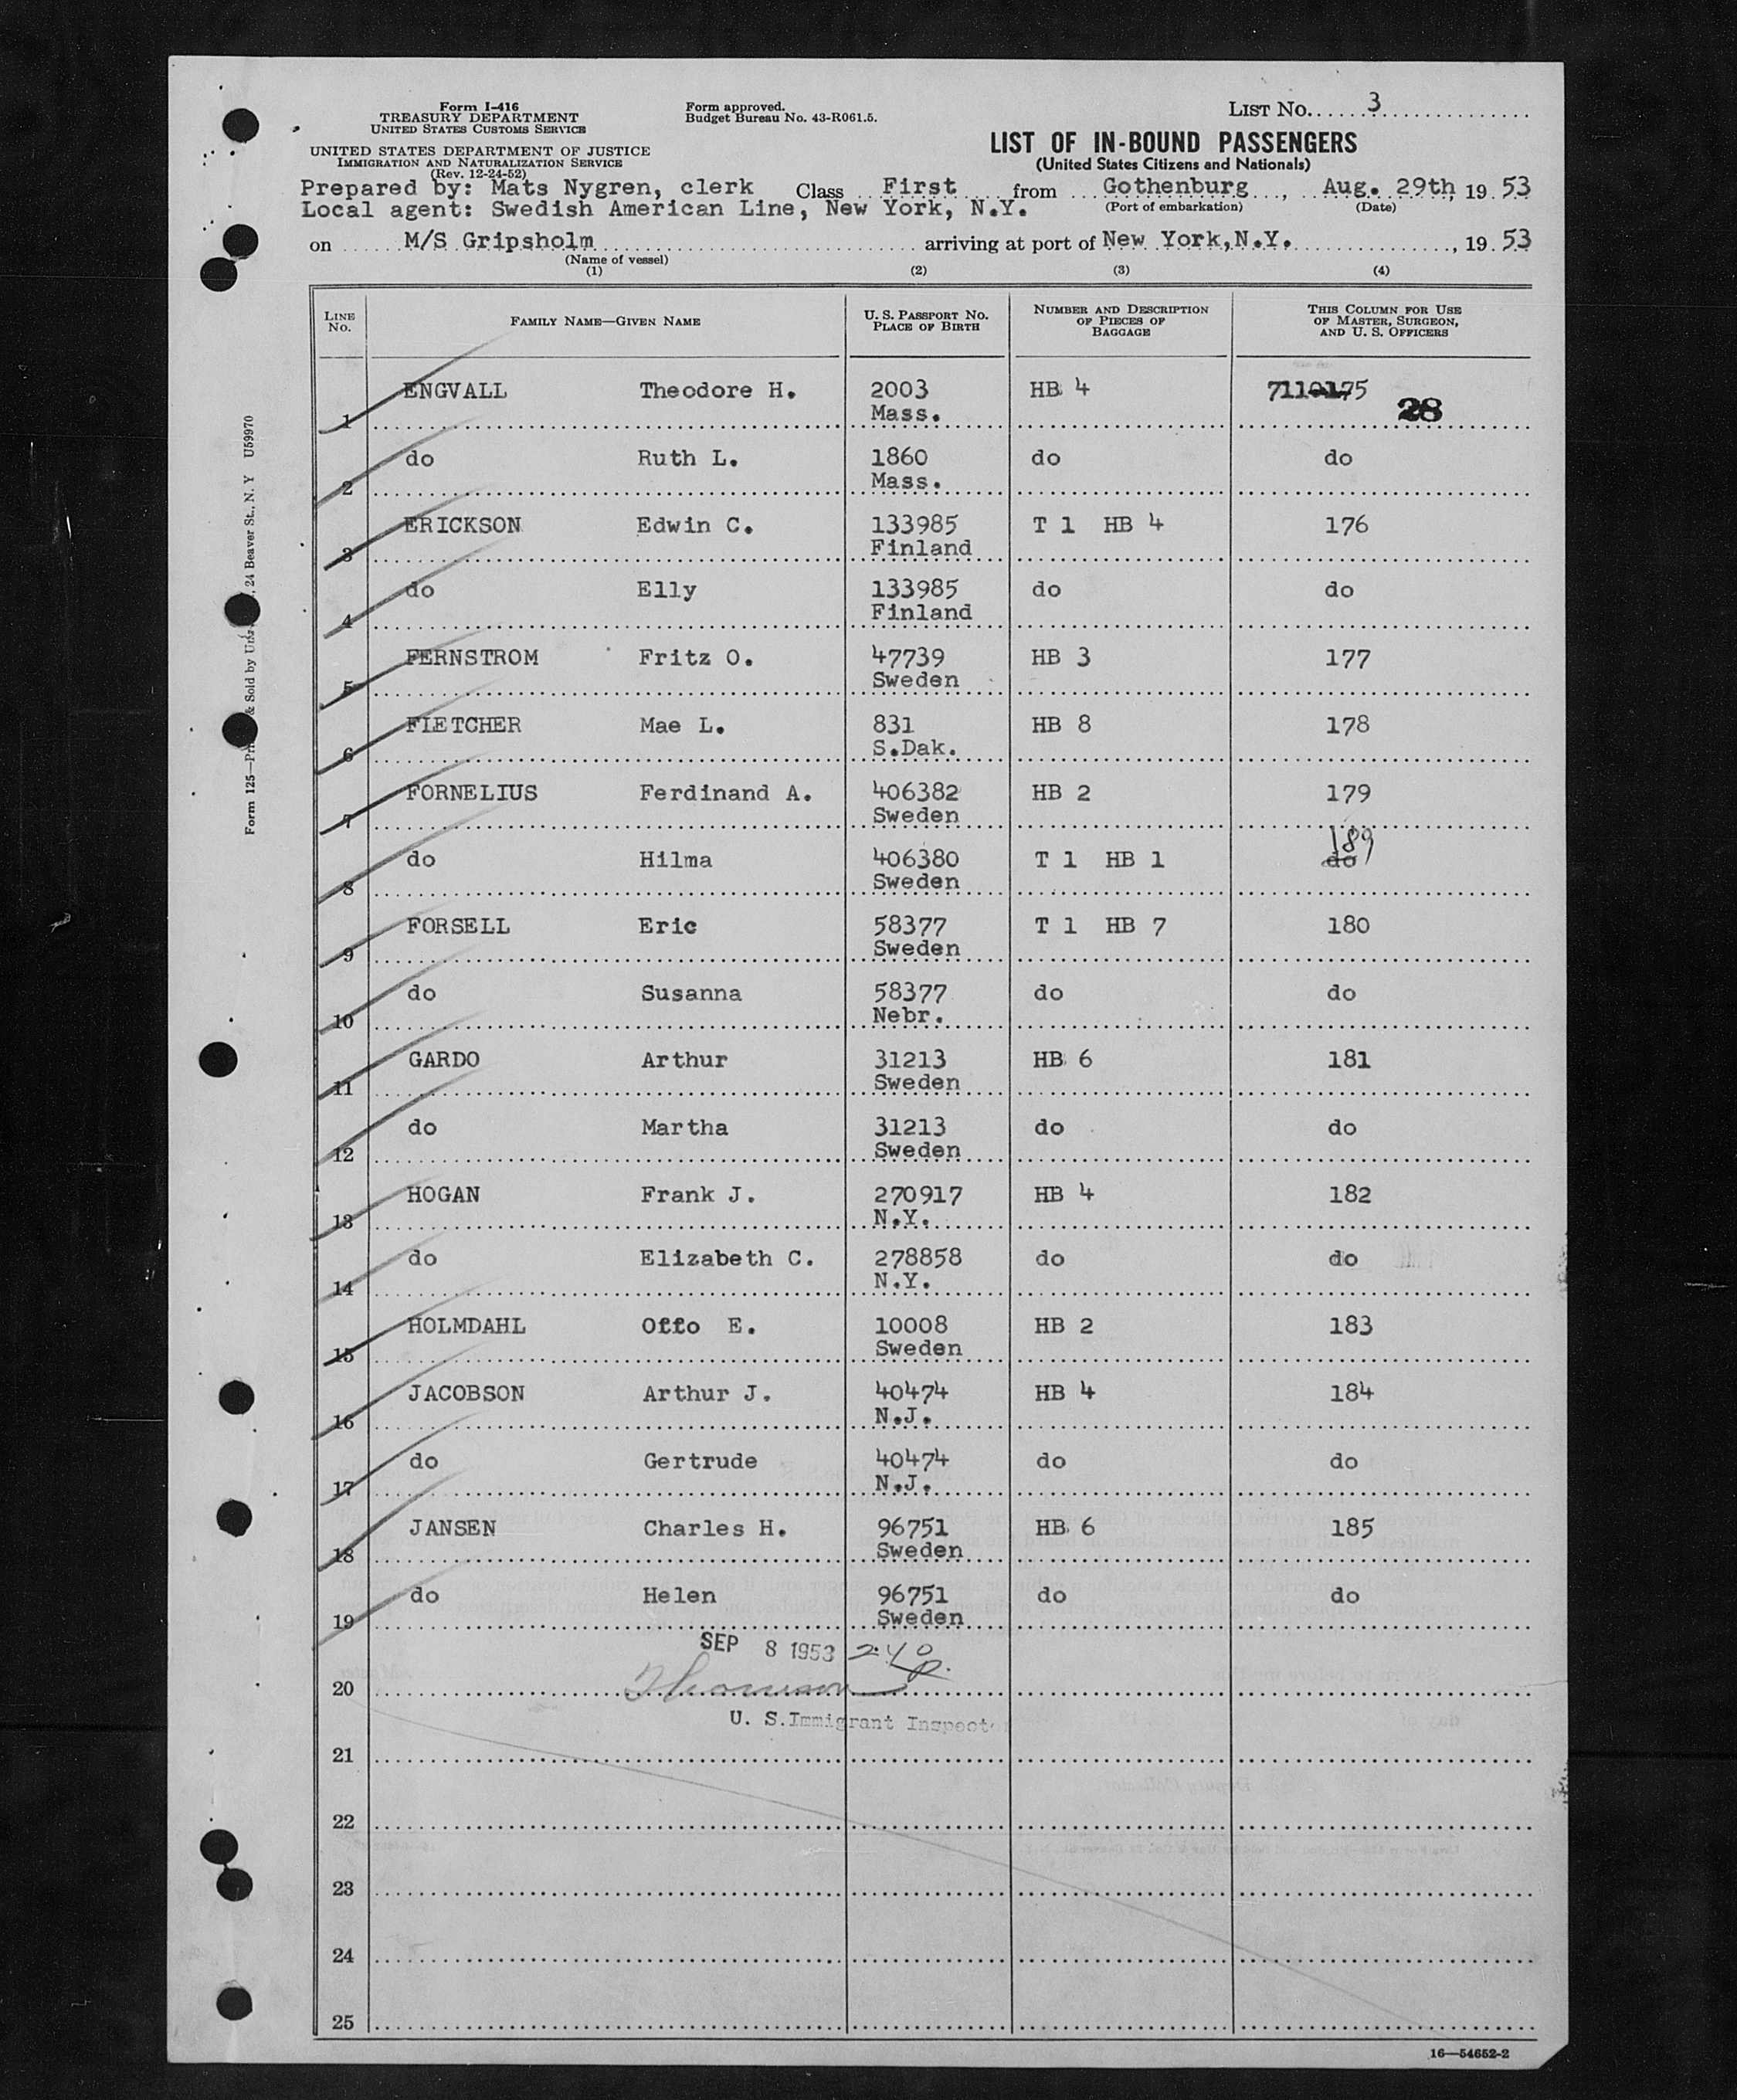 Form I-416
TREASURY DEPARTMENT
UNITED STATES CUSTOMS SERVICE
UNITED STATES DEPARTMENT OF JUSTICE
IMMIGRATION AND NATURALIZATION SERVICE
(Rev. 12-24-52)
Form approved.
Budget Bureau No. 43-R061.5.
LIST No. 3
LIST OF IN-BOUND PASSENGERS
(United States Citizens and Nationals)
Prepared by: Mats Nygren, clerk Class First from Gothenburg, Aug. 29th, 1953
Local agent: Swedish American Line, New York, N.Y. (Port of embarkation) (Date)
on M/S Gripsholm arriving at port of New York, N.Y., 1953
(Name of vessel)
(1) (2) (3) (4)
LINE No. FAMILY NAME—GIVEN NAME U. S. PASSPORT NO. PLACE OF BIRTH NUMBER AND DESCRIPTION OF PIECES OF BAGGAGE THIS COLUMN FOR USE OF MASTER, SURGEON, AND U. S. OFFICERS
1 ENGVALL Theodore H. 2003 HB 4 7110175
Mass. 28
2 do Ruth L. 1860 do do
Mass.
3 ERICKSON Edwin C. 133985 T 1 HB 4 176
Finland
4 do Elly 133985 do do
Finland
5 FERNSTROM Fritz O. 47739 HB 3 177
Sweden
6 FLETCHER Mae L. 831 HB 8 178
S.Dak.
7 FORNELIUS Ferdinand A. 406382 HB 2 179
Sweden
189
8 do Hilma 406380 T 1 HB 1 do
Sweden
9 FORSELL Eric 58377 T 1 HB 7 180
Sweden
10 do Susanna 58377 do do
Nebr.
11 GARDO Arthur 31213 HB 6 181
Sweden
12 do Martha 31213 do do
Sweden
13 HOGAN Frank J. 270917 HB 4 182
N.Y.
14 do Elizabeth C. 278858 do do
N.Y.
15 HOLMDAHL Otto E. 10008 HB 2 183
Sweden
16 JACOBSON Arthur J. 40474 HB 4 184
N.J.
17 do Gertrude 40474 do do
N.J.
18 JANSEN Charles H. 96751 HB 6 185
Sweden
19 do Helen 96751 do do
Sweden
SEP 8 1953 240 p.
20
U. S. Immigrant Inspector
21
22
23
24
25
16—54652-2
Form 125—Pr & Sold by , 24 Beaver St., N. Y U59970